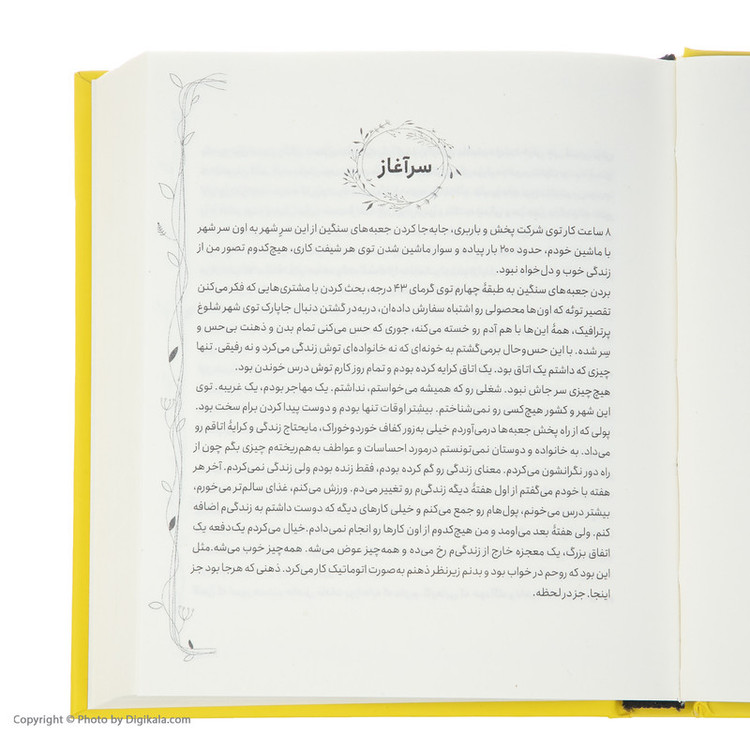 سرآغاز
۸ ساعت کار توی شرکت پخش و باربری، جابه‌جا کردن جعبه‌های سنگین از این سرِ شهر به اون سر شهر
با ماشین خودم، حدود ۲۰۰ بار پیاده و سوار ماشین شدن توی هر شیفت کاری، هیچ‌کدوم تصور من از
زندگی خوب و دل‌خواه نبود.
بردن جعبه‌های سنگین به طبقهٔ چهارم توی گرمای ۴۳ درجه، بحث کردن با مشتری‌هایی که فکر می‌کنن
تقصیر توئه که اون‌ها محصولی رو اشتباه سفارش داده‌ان، دربه‌در گشتن دنبال جاپارک توی شهر شلوغ
پرترافیک، همهٔ این‌ها با هم آدم رو خسته می‌کنه، جوری که حس می‌کنی تمام بدن و ذهنت بی‌حس و
سِر شده. با این حس‌وحال برمی‌گشتم به خونه‌ای که نه خانواده‌ای توش زندگی می‌کرد و نه رفیقی. تنها
چیزی که داشتم یک اتاق بود. یک اتاق کرایه کرده بودم و تمام روز کارم توش درس خوندن بود.
هیچ‌چیزی سر جاش نبود. شغلی رو که همیشه می‌خواستم، نداشتم. یک مهاجر بودم، یک غریبه. توی
این شهر و کشور هیچ‌کسی رو نمی‌شناختم. بیشتر اوقات تنها بودم و دوست پیدا کردن برام سخت بود.
پولی که از راه پخش جعبه‌ها درمی‌آوردم خیلی به‌زور کفاف خوردوخوراک، مایحتاج زندگی و کرایهٔ اتاقم رو
می‌داد. به خانواده و دوستان نمی‌تونستم درمورد احساسات و عواطف به‌هم‌ریخته‌م چیزی بگم چون از
راه دور نگرانشون می‌کردم. معنای زندگی رو گم کرده بودم، فقط زنده بودم ولی زندگی نمی‌کردم. آخر هر
هفته با خودم می‌گفتم از اول هفتهٔ دیگه زندگی‌م رو تغییر می‌دم. ورزش می‌کنم، غذای سالم‌تر می‌خورم،
بیشتر درس می‌خونم، پول‌هام رو جمع می‌کنم و خیلی کارهای دیگه که دوست داشتم به زندگی‌م اضافه
کنم. ولی هفتهٔ بعد می‌اومد و من هیچ‌کدوم از اون کارها رو انجام نمی‌دادم.خیال می‌کردم یک‌دفعه یک
اتفاق بزرگ، یک معجزه خارج از زندگی‌م رخ می‌ده و همه‌چیز عوض می‌شه. همه‌چیز خوب می‌شه.مثل
این بود که روحم در خواب بود و بدنم زیرنظر ذهنم به‌صورت اتوماتیک کار می‌کرد. ذهنی که هرجا بود جز
اینجا. جز در لحظه.
Copyright © Photo by Digikala.com